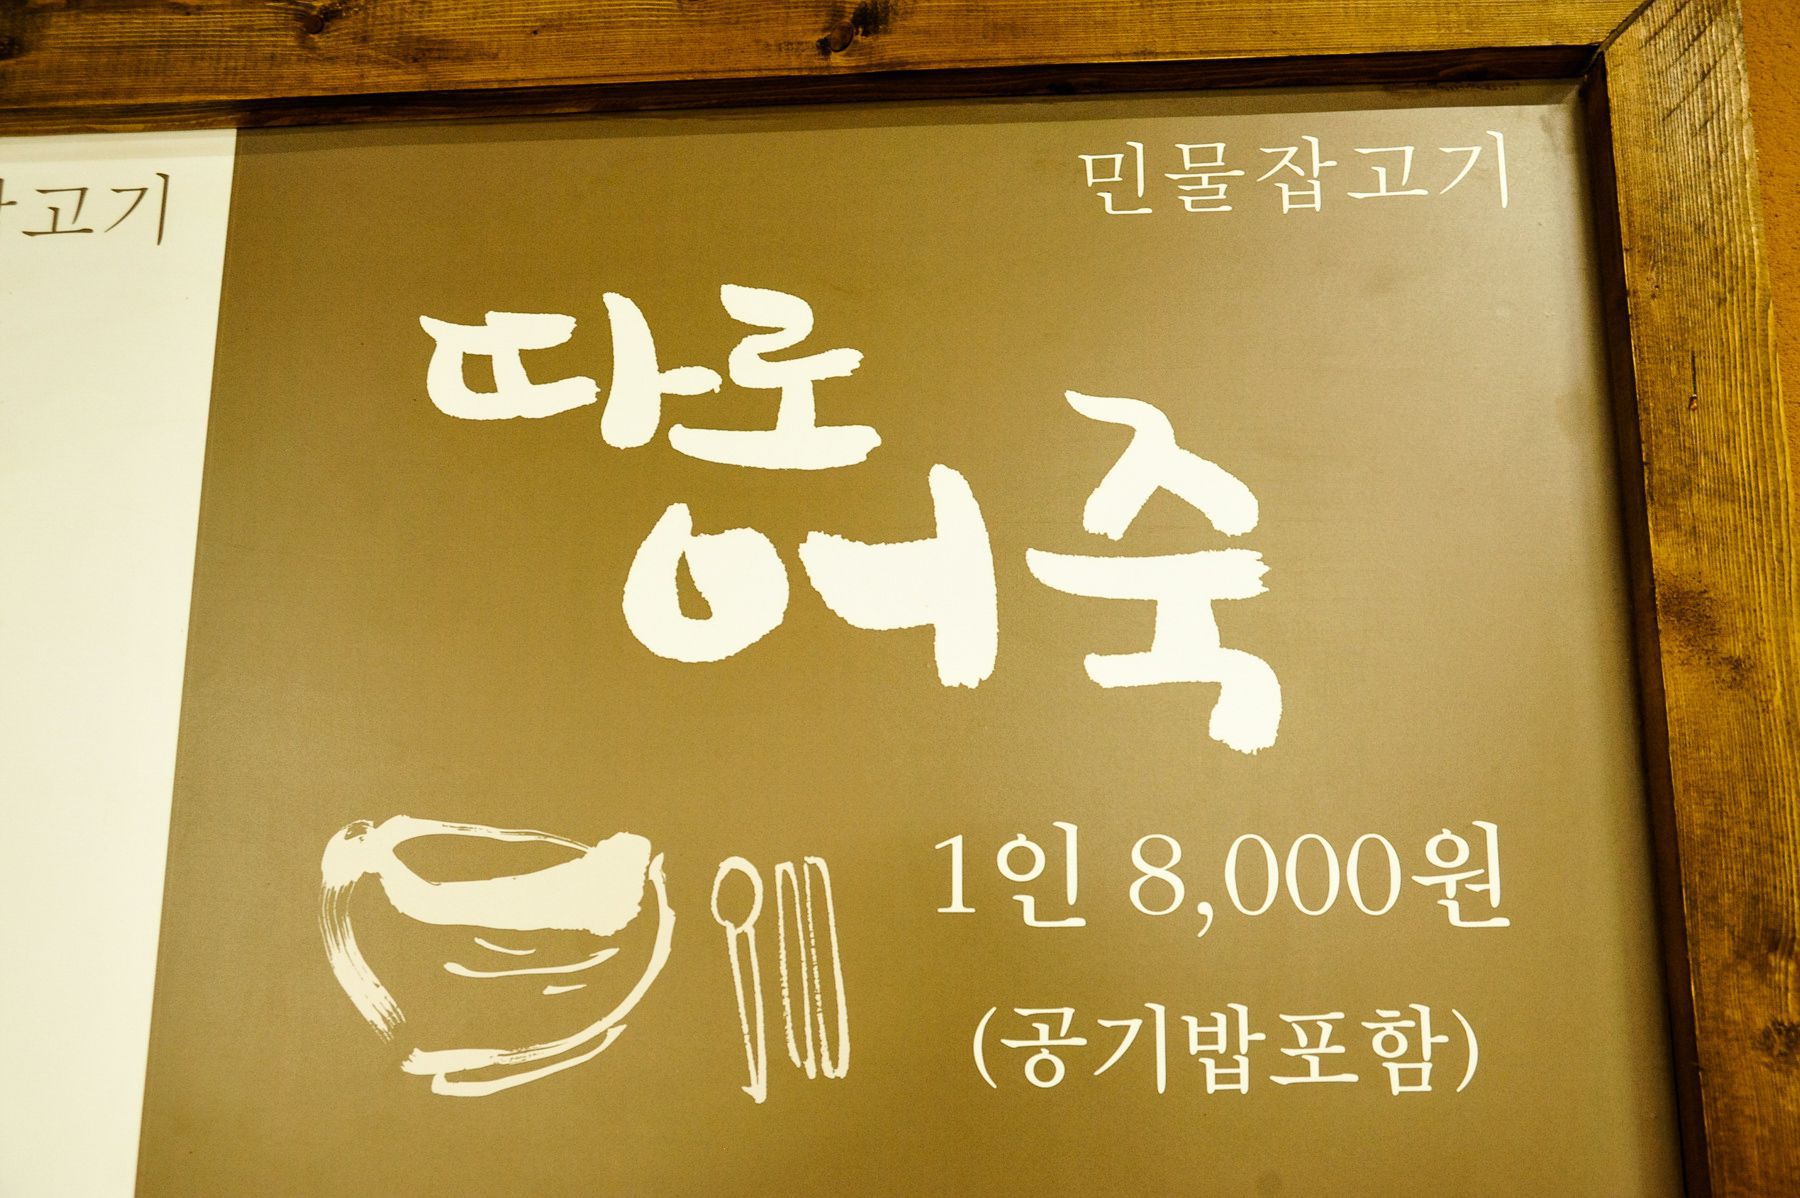 고기
민물잡고기
따로
어죽
1인 8,000원
(공기밥포함)